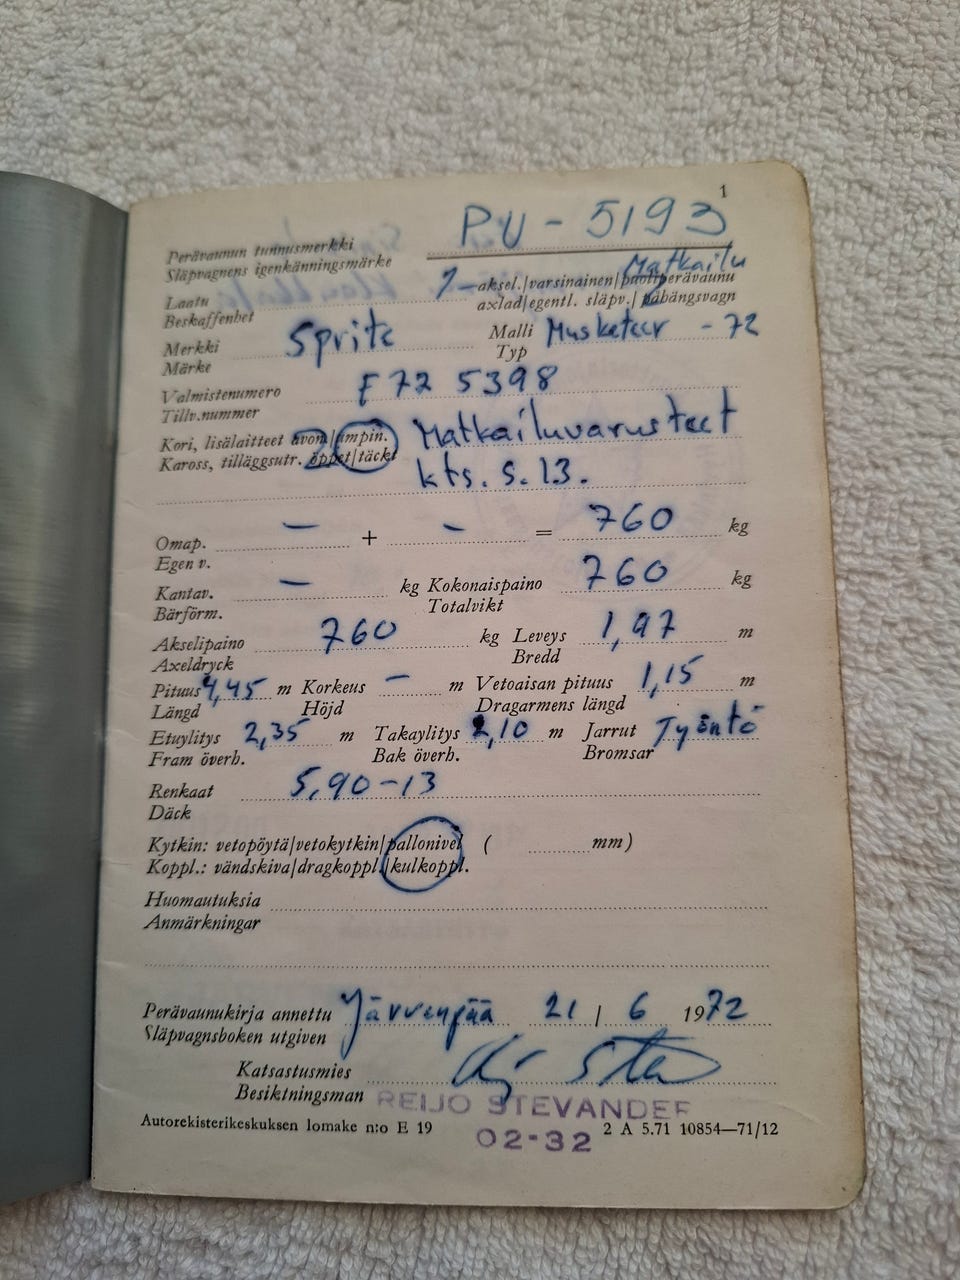 1
PU - 5193
Perävaunun tunnusmerkki
Släpvagnens igenkänningsmärke
Matkailu
Laatu 1-aksel./varsinainen/puoliperävaunu
Beskaffenhet axlad/egentl. släpv./påhängsvagn
Merkki Sprite Malli Musketeer - 72
Märke Typ
Valmistenumero F72 5398
Tillv.nummer
Kori, lisälaitteet avon/umpin. Matkailuvarusteet
Kaross, tilläggsutr. öppet/täckt kts. s. 13.
Omap. — + — = 760 kg
Egen v.
Kantav. — kg Kokonaispaino 760 kg
Bärförm. Totalvikt
Akselipaino 760 kg Leveys 1,97 m
Axeldryck Bredd
Pituus 4,45 m Korkeus — m Vetoaisan pituus 1,15 m
Längd Höjd Dragarmens längd
Etuylitys 2,35 m Takaylitys 2,10 m Jarrut Työntö
Fram överh. Bak överh. Bromsar
Renkaat 5,90-13
Däck
Kytkin: vetopöytä/vetokytkin/pallonivel ( mm)
Koppl.: vändskiva/dragkoppl./kulkoppl.
Huomautuksia
Anmärkningar
Perävaunukirja annettu Järvenpää 21 / 6 1972
Släpvagnsboken utgiven
Katsastusmies
Besiktningsman REIJO STEVANDER
Autorekisterikeskuksen lomake n:o E 19 02-32 2 A 5.71 10854—71/12